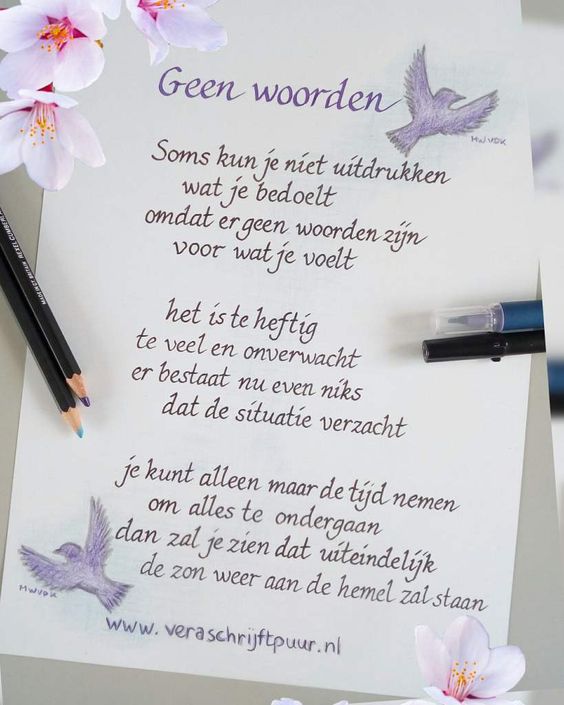 Geen woorden
MWVDK
Soms kun je niet uitdrukken
wat je bedoelt
omdat er geen woorden zijn
voor wat je voelt
het is te heftig
te veel en onverwacht
er bestaat nu even niks
dat de situatie verzacht
je kunt alleen maar de tijd nemen
om alles te ondergaan
dan zal je zien dat uiteindelijk
de zon weer aan de hemel zal staan
MWVDK
www.veraschrijftpuur.nl